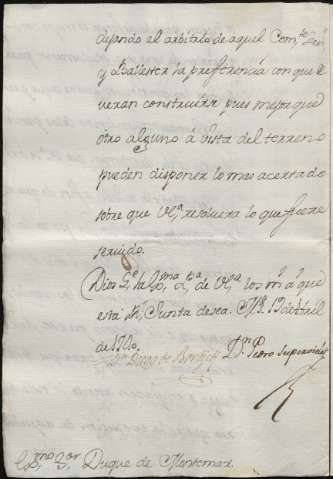 dejando al arbitrio de aquel Com.te Gen.l
y la preferencia con que
veran construir pues mejor que
otro alguno à vista del terreno
pueden disponer lo mas acertado
sobre que VE.a resolverà lo que fuere
servido.
Dios g.e la Ex.ma p.a de VE.a los m.s a.s que
esta R.l Junta desea.
de 1740.
Dn. Pedro Superviela
Ex.mo S.or Duque de Montemar.